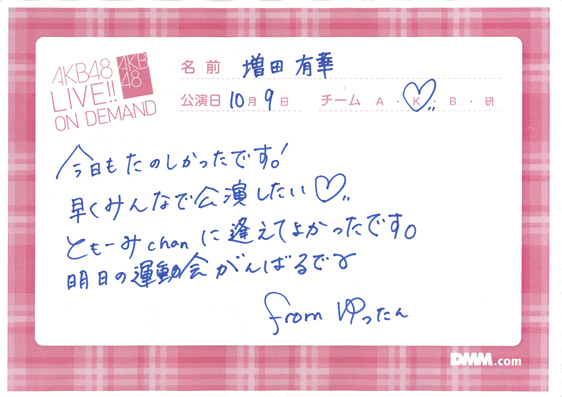 AKB48
LIVE!!
ON DEMAND
AKB
48
名前 増田 有華
公演日 10月 9日 チーム A・K・B・研
今日もたのしかったです。!
早くみんなで公演したい♡
ともーみchanに逢えてよかったです。
明日の運動会がんばるで〜
from ゆったん
DMM.com